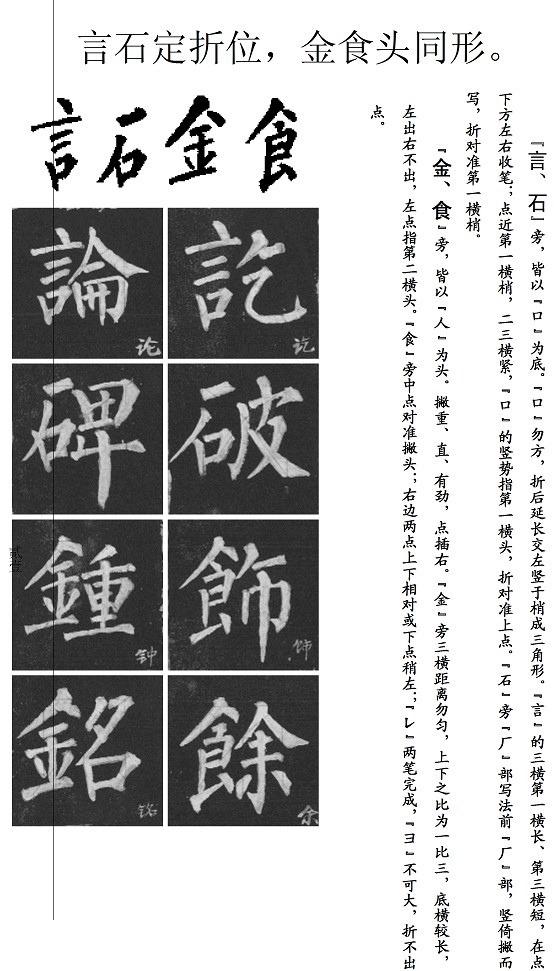 言石定折位，金食头同形。
言石金食
『言、石』旁，皆以『口』为底。『口』勿方，折后延长交左竖于梢成三角形。『言』的三横第一横长、第三横短，在点
下方左右收笔；点近第一横梢，二三横紧，『口』的竖势指第一横头，折对准上点。『石』旁『厂』部写法前『厂』部，竖倚撇而
写，折对准第一横梢。
『金、食』旁，皆以『人』为头。撇重、直、有劲，点插右。『金』旁三横距离勿匀，上下之比为一比三，底横较长，
左出右不出，左点指第二横头。『食』旁中点对准撇头；右边两点上下相对或下点稍左；『レ』两笔完成，『ヨ』不可大，折不出
点。
論 论
訖 讫
碑
破
鍾 钟
飾 饰
銘 铭
餘 余
贰壹